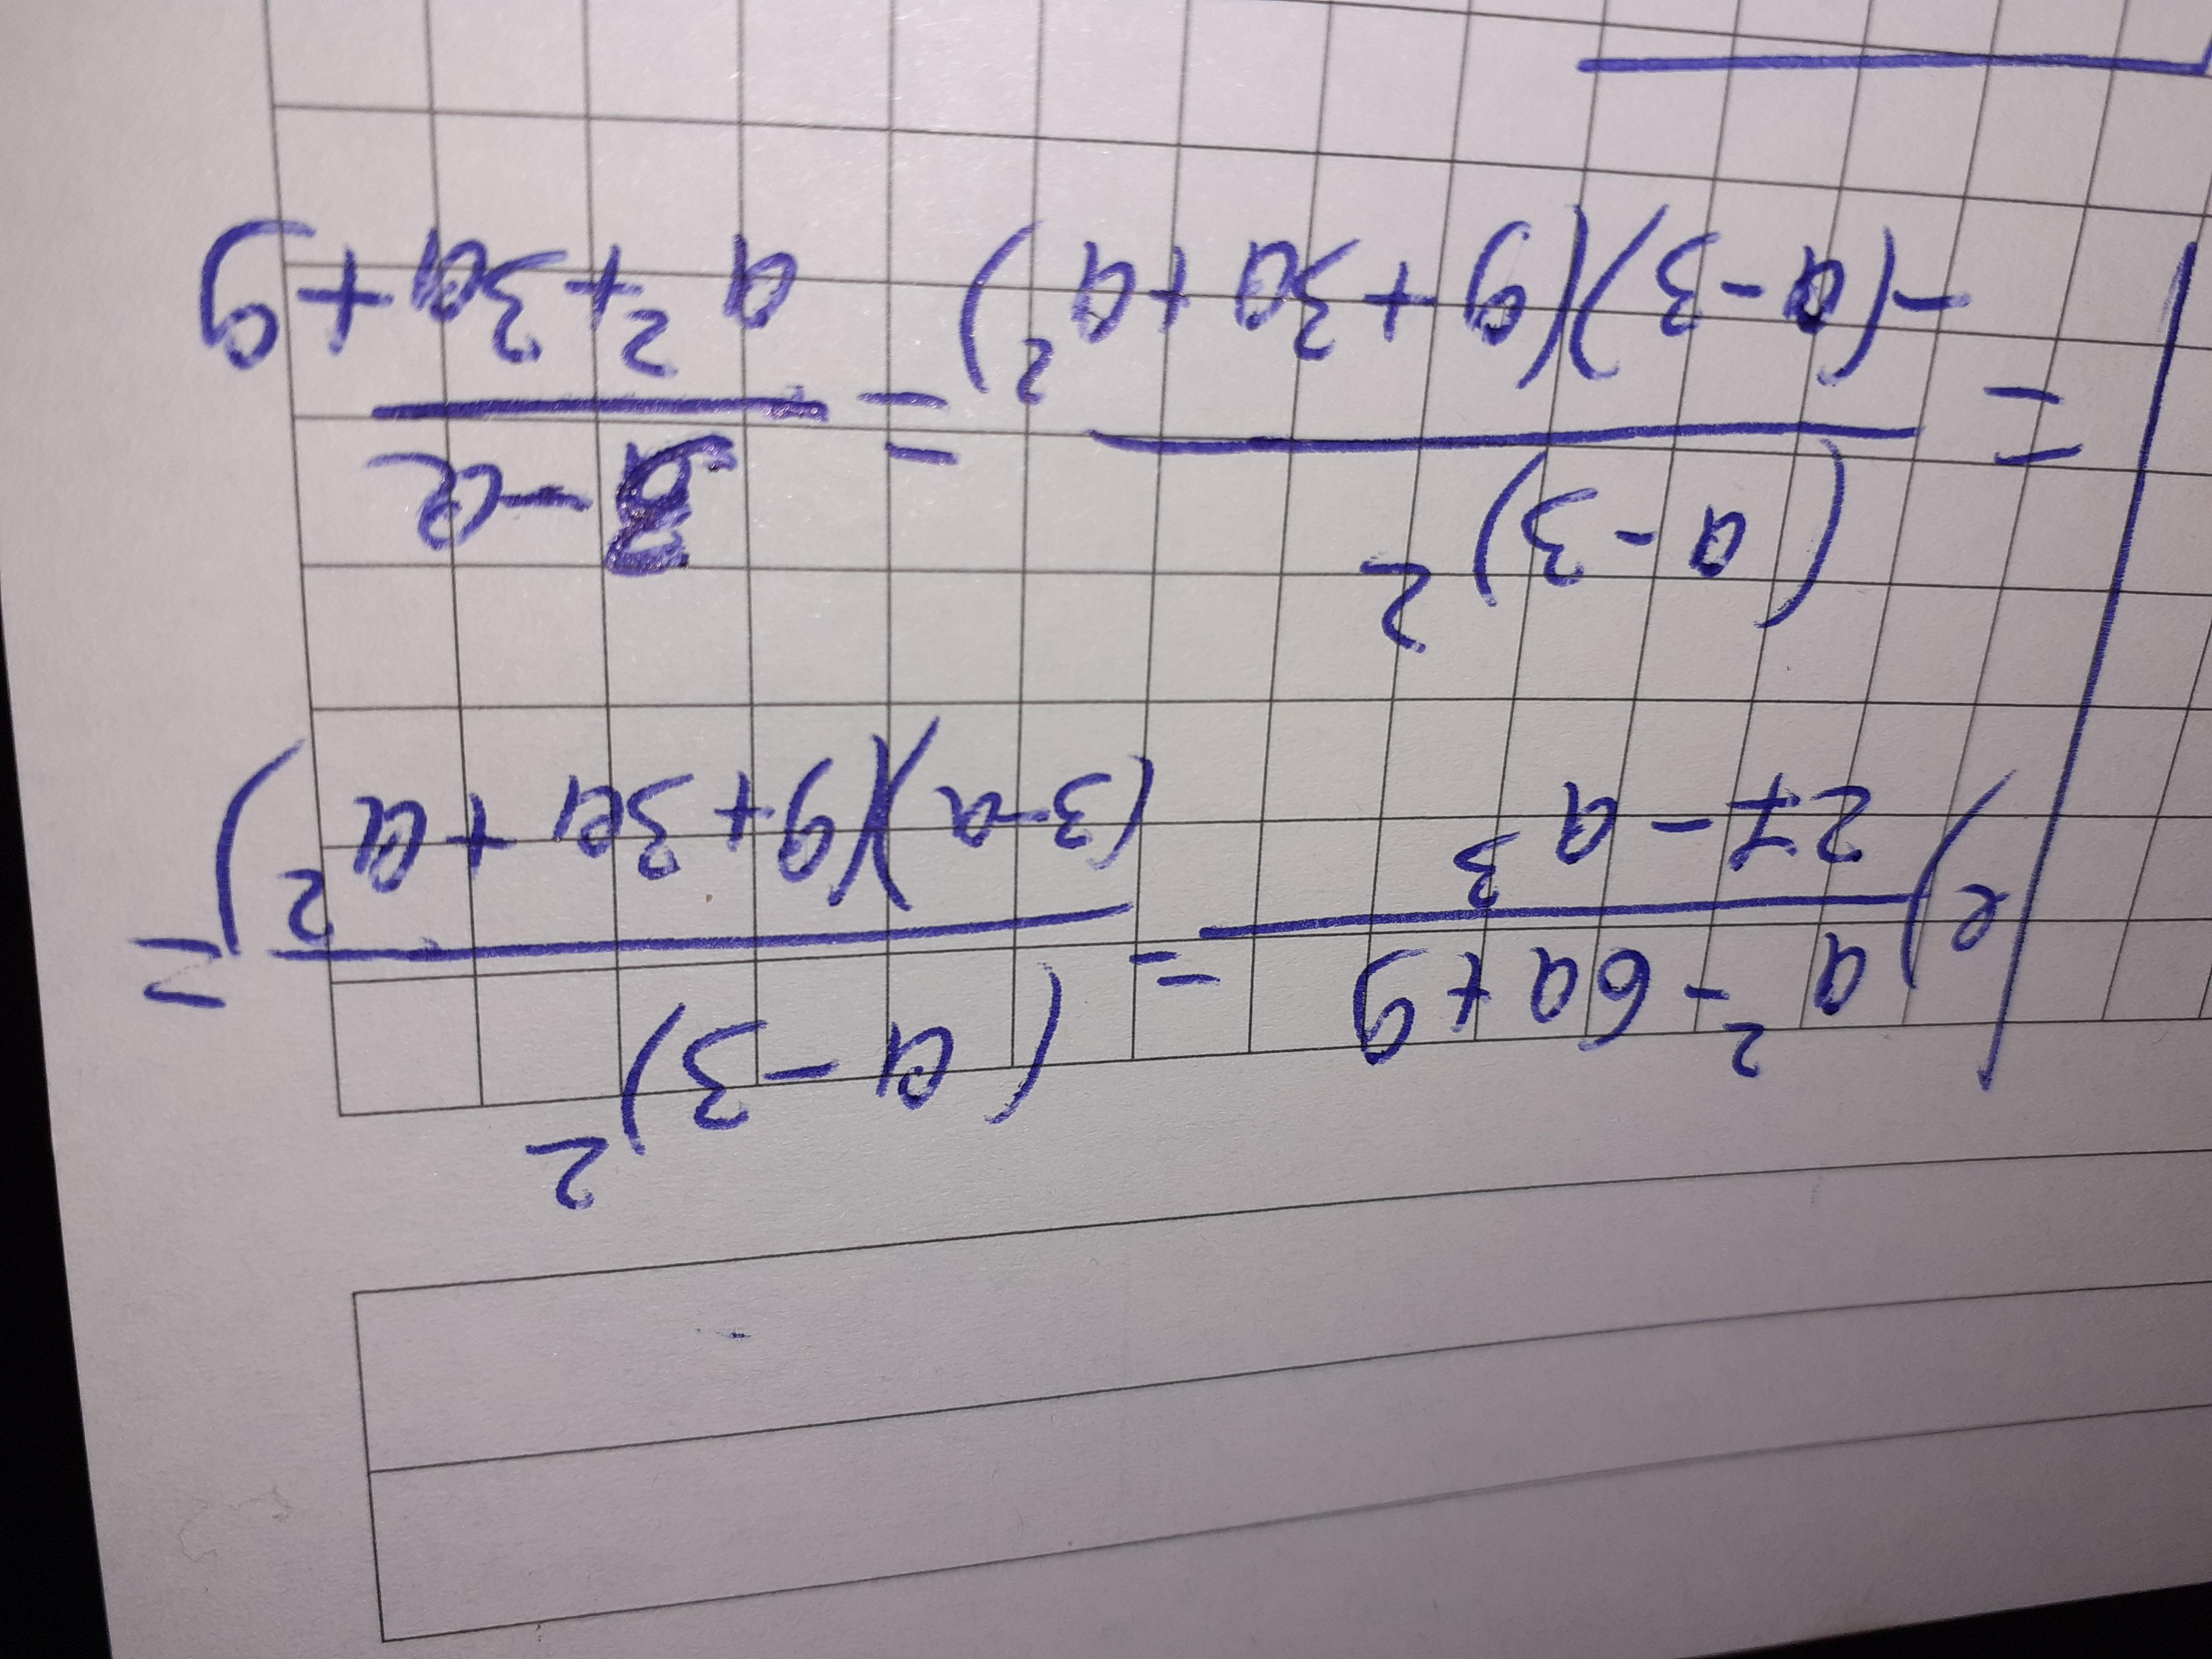 e) a² - 6a + 9 / 27 - a³ = (a - 3)² / (3 - a)(9 + 3a + a²) =
= (a - 3)² / -(a - 3)(9 + 3a + a²) = 3 - a / a² + 3a + 9